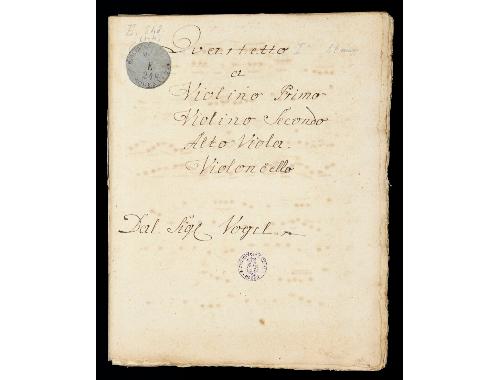 Quartetto
a
Violino Primo
Violino Secondo
Alto Viola.
Violoncello
Dal. Sigr Vogel